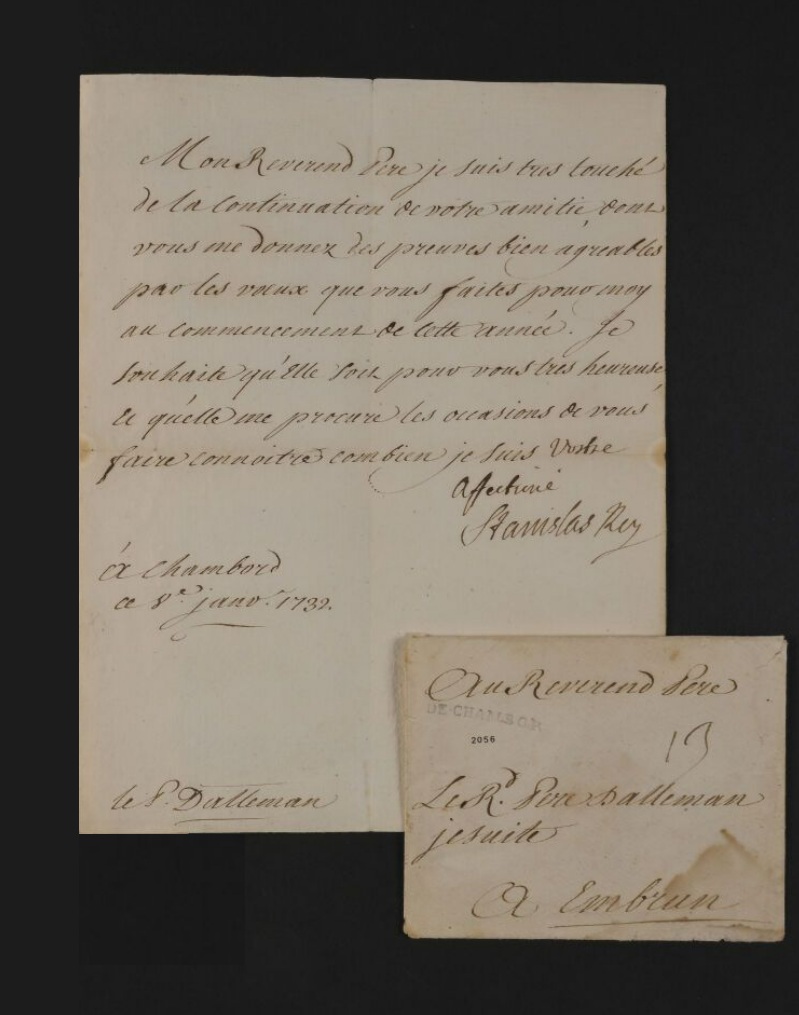 Mon Reverend Pere je suis tres touché
de la Continuation de votre amitié, dont
vous me donnez des preuves bien agreables
par les vœux que vous faites pour moy
au commencement de cette année. Je
souhaite qu'Elle soit pour vous tres heureuse
et qu'elle me procure les occasions de vous
faire connoitre combien je suis Vostre
affectioné
Stanislas Roy
à Chambord
ce 8.e janv.r 1732.
le P. Dalleman
Au Reverend Pere
DE·CHAMBOR
2056
13
Le R.d Pere Dalleman
jesuite
A Embrun